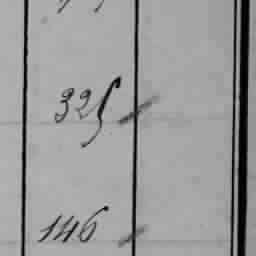 325
146